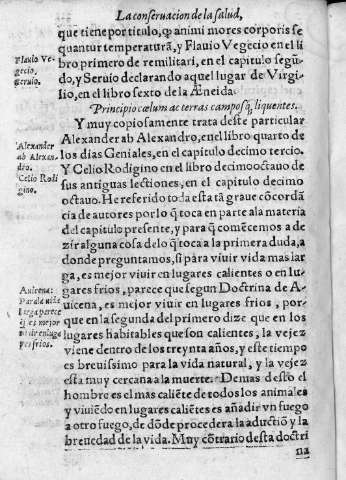 La conseruacion de la salud,
que tiene por titulo, q̃ animi mores corporis se
quantur temperaturã, y Flauio Vegecio en el li
bro primero de remilitari, en el capitulo segũ-
do, y Seruio declarando aquel lugar de Virgi-
lio, en el libro sexto de la Æneida.
Principio cœlum ac terras camposq; liquentes.
Y muy copiosamente trata deste particular
Alexander ab Alexandro, en el libro quarto de
los dias Geniales, en el capitulo decimo tercio.
Y Celio Rodigino en el libro decimo octauo de
sus antiguas lectiones, en el capitulo decimo
octauo. He referido toda esta tã graue cõcordã
cia de autores por lo q̃ toca en parte ala materia
del capitulo presente, y para q̃ comẽcemos a de
zir alguna cosa delo q̃ toca a la primera duda, a
donde preguntamos, si para viuir vida mas lar
ga, es mejor viuir en lugares calientes o en lu-
gares frios, parece que segun Doctrina de A-
uicena, es mejor viuir en lugares frios, por-
que en la segunda del primero dize que en los
lugares habitables que son calientes, la vejez
viene dentro de los treynta años, y este tiempo
es breuissimo para la vida natural, y la vejez
esta muy cercana a la muerte. Demas desto el
hombre es el mas caliẽte de todos los animales
y viuiẽdo en lugares caliẽtes es añadir vn fuego
a otro fuego, de dõde procedera la aductiõ, y la
breuedad de la vida. Muy cõtrario desta doctri
na
Flauio Ve-
gecio,
Seruio.
Alexander
ab Alexan-
dro.
Celio Rodi
gino.
Auicena:
Para la vida
larga parece
q̃ es mejor
viuir en luga
res frios.